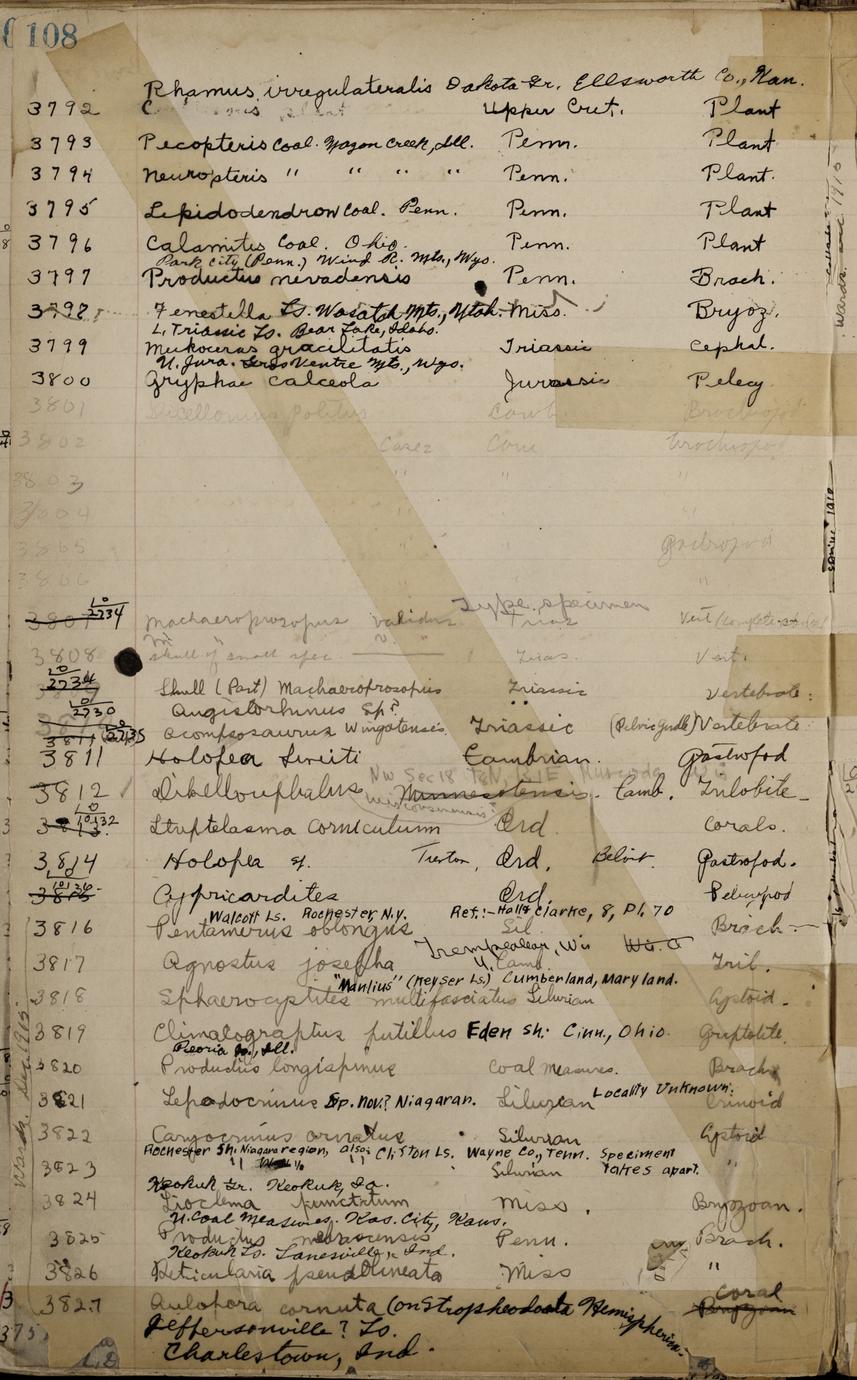 108
Rhamus irregulateralis Dakota Gr. Ellsworth Co., Kan.
3792 Upper Cret. Plant
3793 Pecopteris Coal. Mazon Creek, Ill. Penn. Plant
3794 Neuropteris " " " " Penn. Plant.
3795 Lepidodendron Coal. Penn. Penn. Plant
3796 Calamites Coal. Ohio. Penn. Plant
Park City (Penn.) Wind R. Mts., Wyo.
3797 Productus nevadensis Penn. Brach.
3798 Fenestella Ls. Wasatch Mts., Utah. Miss. Bryoz.
L. Triassic Ls. Bear Lake, Idaho.
3799 Meekoceras gracilitatis Triassic Cephal.
U. Jura. Gros Ventre Mts., Wyo.
3800 Gryphae calceola Jurassic Pelecy
3801 politus Camb. Brachiopod
3802 Brachiopod
3803 " " "
3804 " "
3805 Gastropod
3806 "
Type specimen
3807 10 2734 Machaeroprosopus validus Trias Vert
3808 skull of small spec Trias. Vert.
10 2734 Skull (Part) Machaeroprosopus Triassic Vertebrate
10 2730 Angistorhinus Sp? "
3811 10 2735 Acompsosaurus Wingatensis Triassic (Pelvic Girdle) Vertebrate
3811 Holopea Sweeti Cambrian. Gastropod
NW Sec 18 T8N, R1E
3812 Dikellocephalus Minnesotensis Camb. Trilobite
wisconsinensis?
3813 10132 Streptelasma corniculum Ord. Corals.
3814 Holopea sp. Trenton, Ord. Beloit. Gastropod.
3815 10136 Cypricardites Ord. Pelecypod
Walcott Ls. Rochester N.y. Ref:- Hall & Clarke, 8, Pl. 70
3816 Pentamerus oblongus Sil. Brach
Trempealeau, Wis
3817 Agnostus josepha U. Camb. Tril.
"Manlius" (Keyser Ls.) Cumberland, Maryland.
3818 Sphaerocystites multifasciatus Silurian Cystoid.
3819 Climatograptus putillus Eden sh. Cinn., Ohio. Graptolite
Peoria Co., Ill.
3820 Productus longispinus Coal Measures. Brach
3821 Lepadocrinus Sp. nov.? Niagaran. Silurian Locality Unknown. Crinoid
3822 Caryocrinus ornatus Silurian Cystoid
Rochester Sh. Niagara region, also: Clifton Ls. Wayne Co., Tenn. Speciment
3823 " " Silurian takes apart. "
Keokuk Gr. Keokuk, Ia.
3824 Lioclema punctatum Miss. Bryozoan.
U. Coal Measures. Kas. City, Kans.
3825 Productus nebrascensis Penn. Brach.
Keokuk Ls. Lanesville, Ind.
3826 Reticularia pseudolineata Miss "
coral
3827 Aulopora cornuta (on Stropheodonta Hemispherica Bryozoan
Jeffersonville? Ls.
Charlestown, Ind.